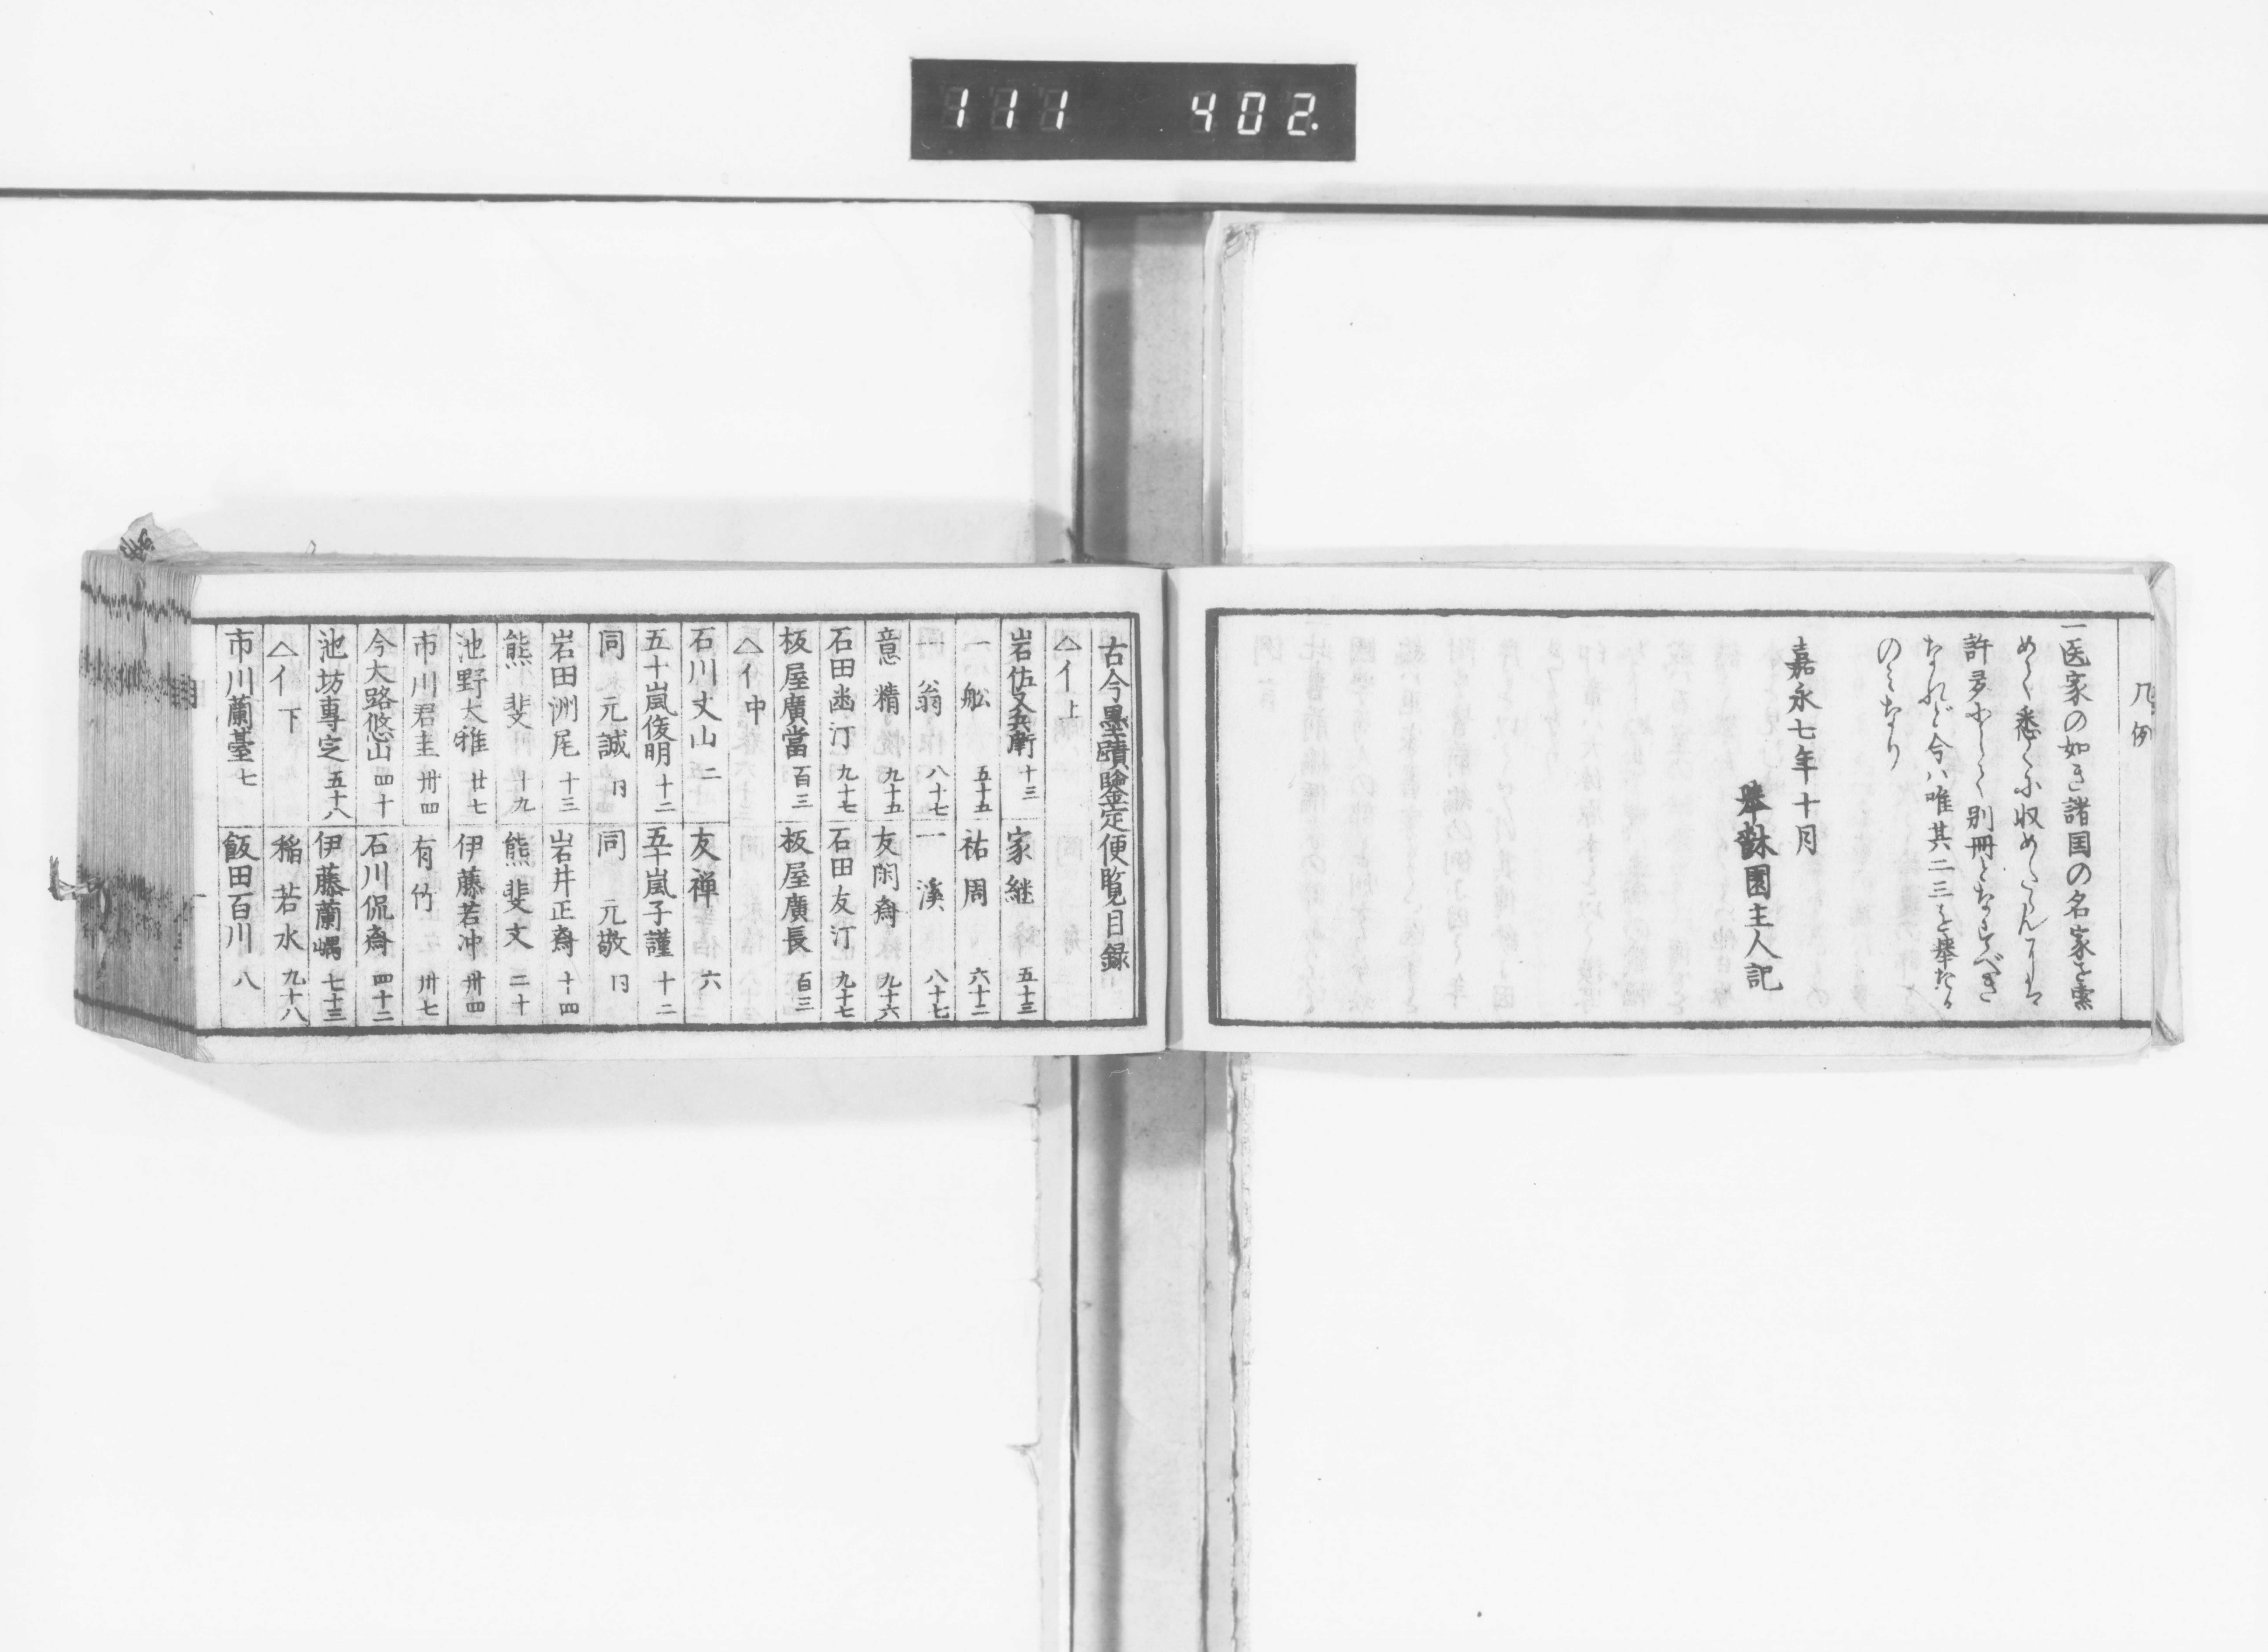 111 402.
凡例
一医家の如き諸国の名家を索
めて悉く収めたらんには
許多にして別冊となすべき
なれど今ハ唯其二三を挙たる
のミなり
嘉永七年十月
園主人記
古今墨蹟鑒定便覧目録
△イ上
岩佐又兵衛 十三 家継 五十三
一舩 五十五 祐周 六十二
一翁 八十七 一溪 八十七
意精 九十五 友閑斎 九十六
石田幽汀 九十七 石田友汀 九十七
板屋廣當 百三 板屋廣長 百三
△イ中
石川丈山 二 友禅 六
五十嵐俊明 十二 五十嵐子謹 十二
同元誠 同 元敬
岩田洲尾 十三 岩井正斎 十四
熊斐 十九 熊斐文 二十
池野大雅 廿七 伊藤若冲 卅四
市川君圭 卅四 有竹 卅七
今大路悠山 四十 石川侃斎 四十二
池坊専定 五十八 伊藤蘭嵎 七十三
△イ下 稲若水 九十八
市川蘭臺 七 飯田百川 八